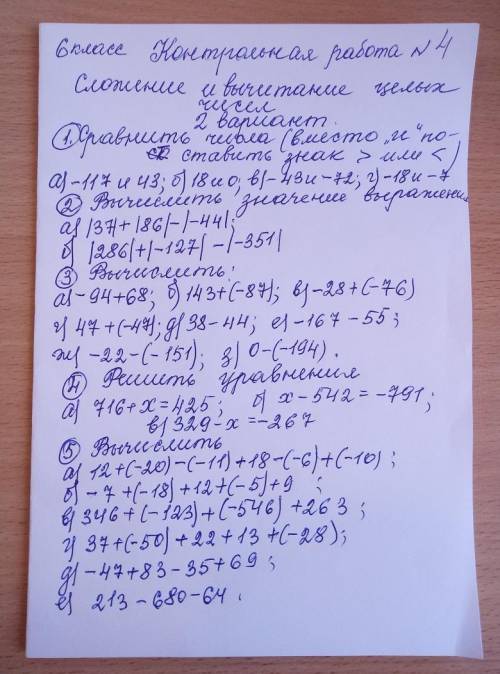 6 класс Контрольная работа №4
Сложение и вычитание целых
чисел
2 вариант.
① Сравнить числа (вместо „и" по-
ставить знак > или <)
а) -117 и 43; б) 18 и 0; в) -43 и -72; г) -18 и -7
② Вычислить значение выражения
а) |37| + |86| - |-44|;
б) |286| + |-127| - |-351|
③ Вычислить:
а) -94+68; б) 143+(-87); в) -28+(-76)
г) 47+(-47); д) 38-44; е) -167-55;
ж) -22-(-151); з) 0-(-194).
④ Решить уравнения
а) 716+x=425; б) x-542=-791;
в) 329-x=-267
⑤ Вычислить
а) 12+(-20)-(-11)+18-(-6)+(-10);
б) -7+(-18)+12+(-5)+9;
в) 346+(-123)+(-546)+263;
г) 37+(-50)+22+13+(-28);
д) -47+83-35+69;
е) 213-680-64.